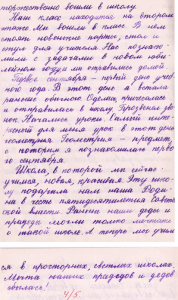 торжественно вошли в школу.
Наш класс находится на втором
этаже. Мы вошли в класс. В нём
стоят новенькие парты, стол и
стул для учителя. Нас познако-
мили с задачами в новом юби-
лейном году и мы отправились домой.
Первое сентября – первый день учеб-
ного года. В этот день я встала
раньше обычного. Оделась, причесалась
и отправилась в школу. Прозвенел зво-
нок. Начались уроки. Самый инте-
ресный для меня урок в этот день
геометрия. Геометрия – предмет,
с которым я познакомилась перво-
го сентября.
Школа, в которой мы сейчас
учимся, новая, красивая. Эту шко-
лу подарила нам наша Роди-
на в честь пятидесятилетия Совет-
ской власти. Раньше наши деды и
прадеды могли только мечтать
о такой школе. А теперь мы учим-
ся в просторных, светлых школах.
Мечта наших прадедов и дедов
сбылась!
4/5